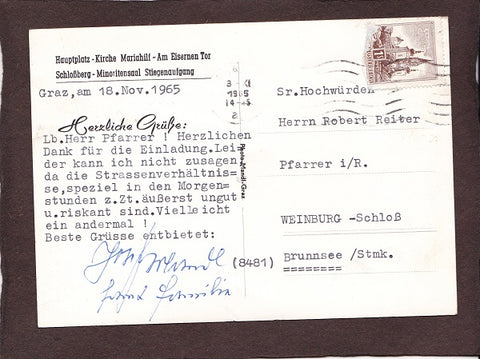 Hauptplatz - Kirche Mariahilf - Am Eisernen Tor
Schloßberg - Minoritensaal Stiegenaufgang
Graz,am 18.Nov.1965
Herzliche Grüße:
Lb.Herr Pfarrer ! Herzlichen
Dank für die Einladung.Lei=
der kann ich nicht zusagen
da die Strassenverhältnis=
se,speziel in den Morgen=
stunden z.Zt.äußerst ungut
u.riskant sind.Vielleicht
ein andermal !
Beste Grüsse entbietet:
Josef
samt Familie
1965
Sr.Hochwürden
Herrn Robert Reiter
Pfarrer i/R.
WEINBURG -Schloß
(8481) Brunnsee /Stmk.